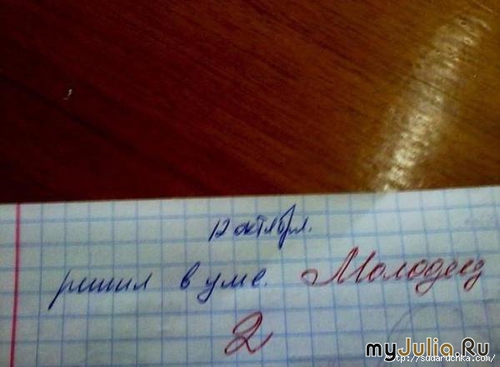 12 октября.
решил в уме. Молодец
2
myJulia.Ru
https://sudaruchka.com/